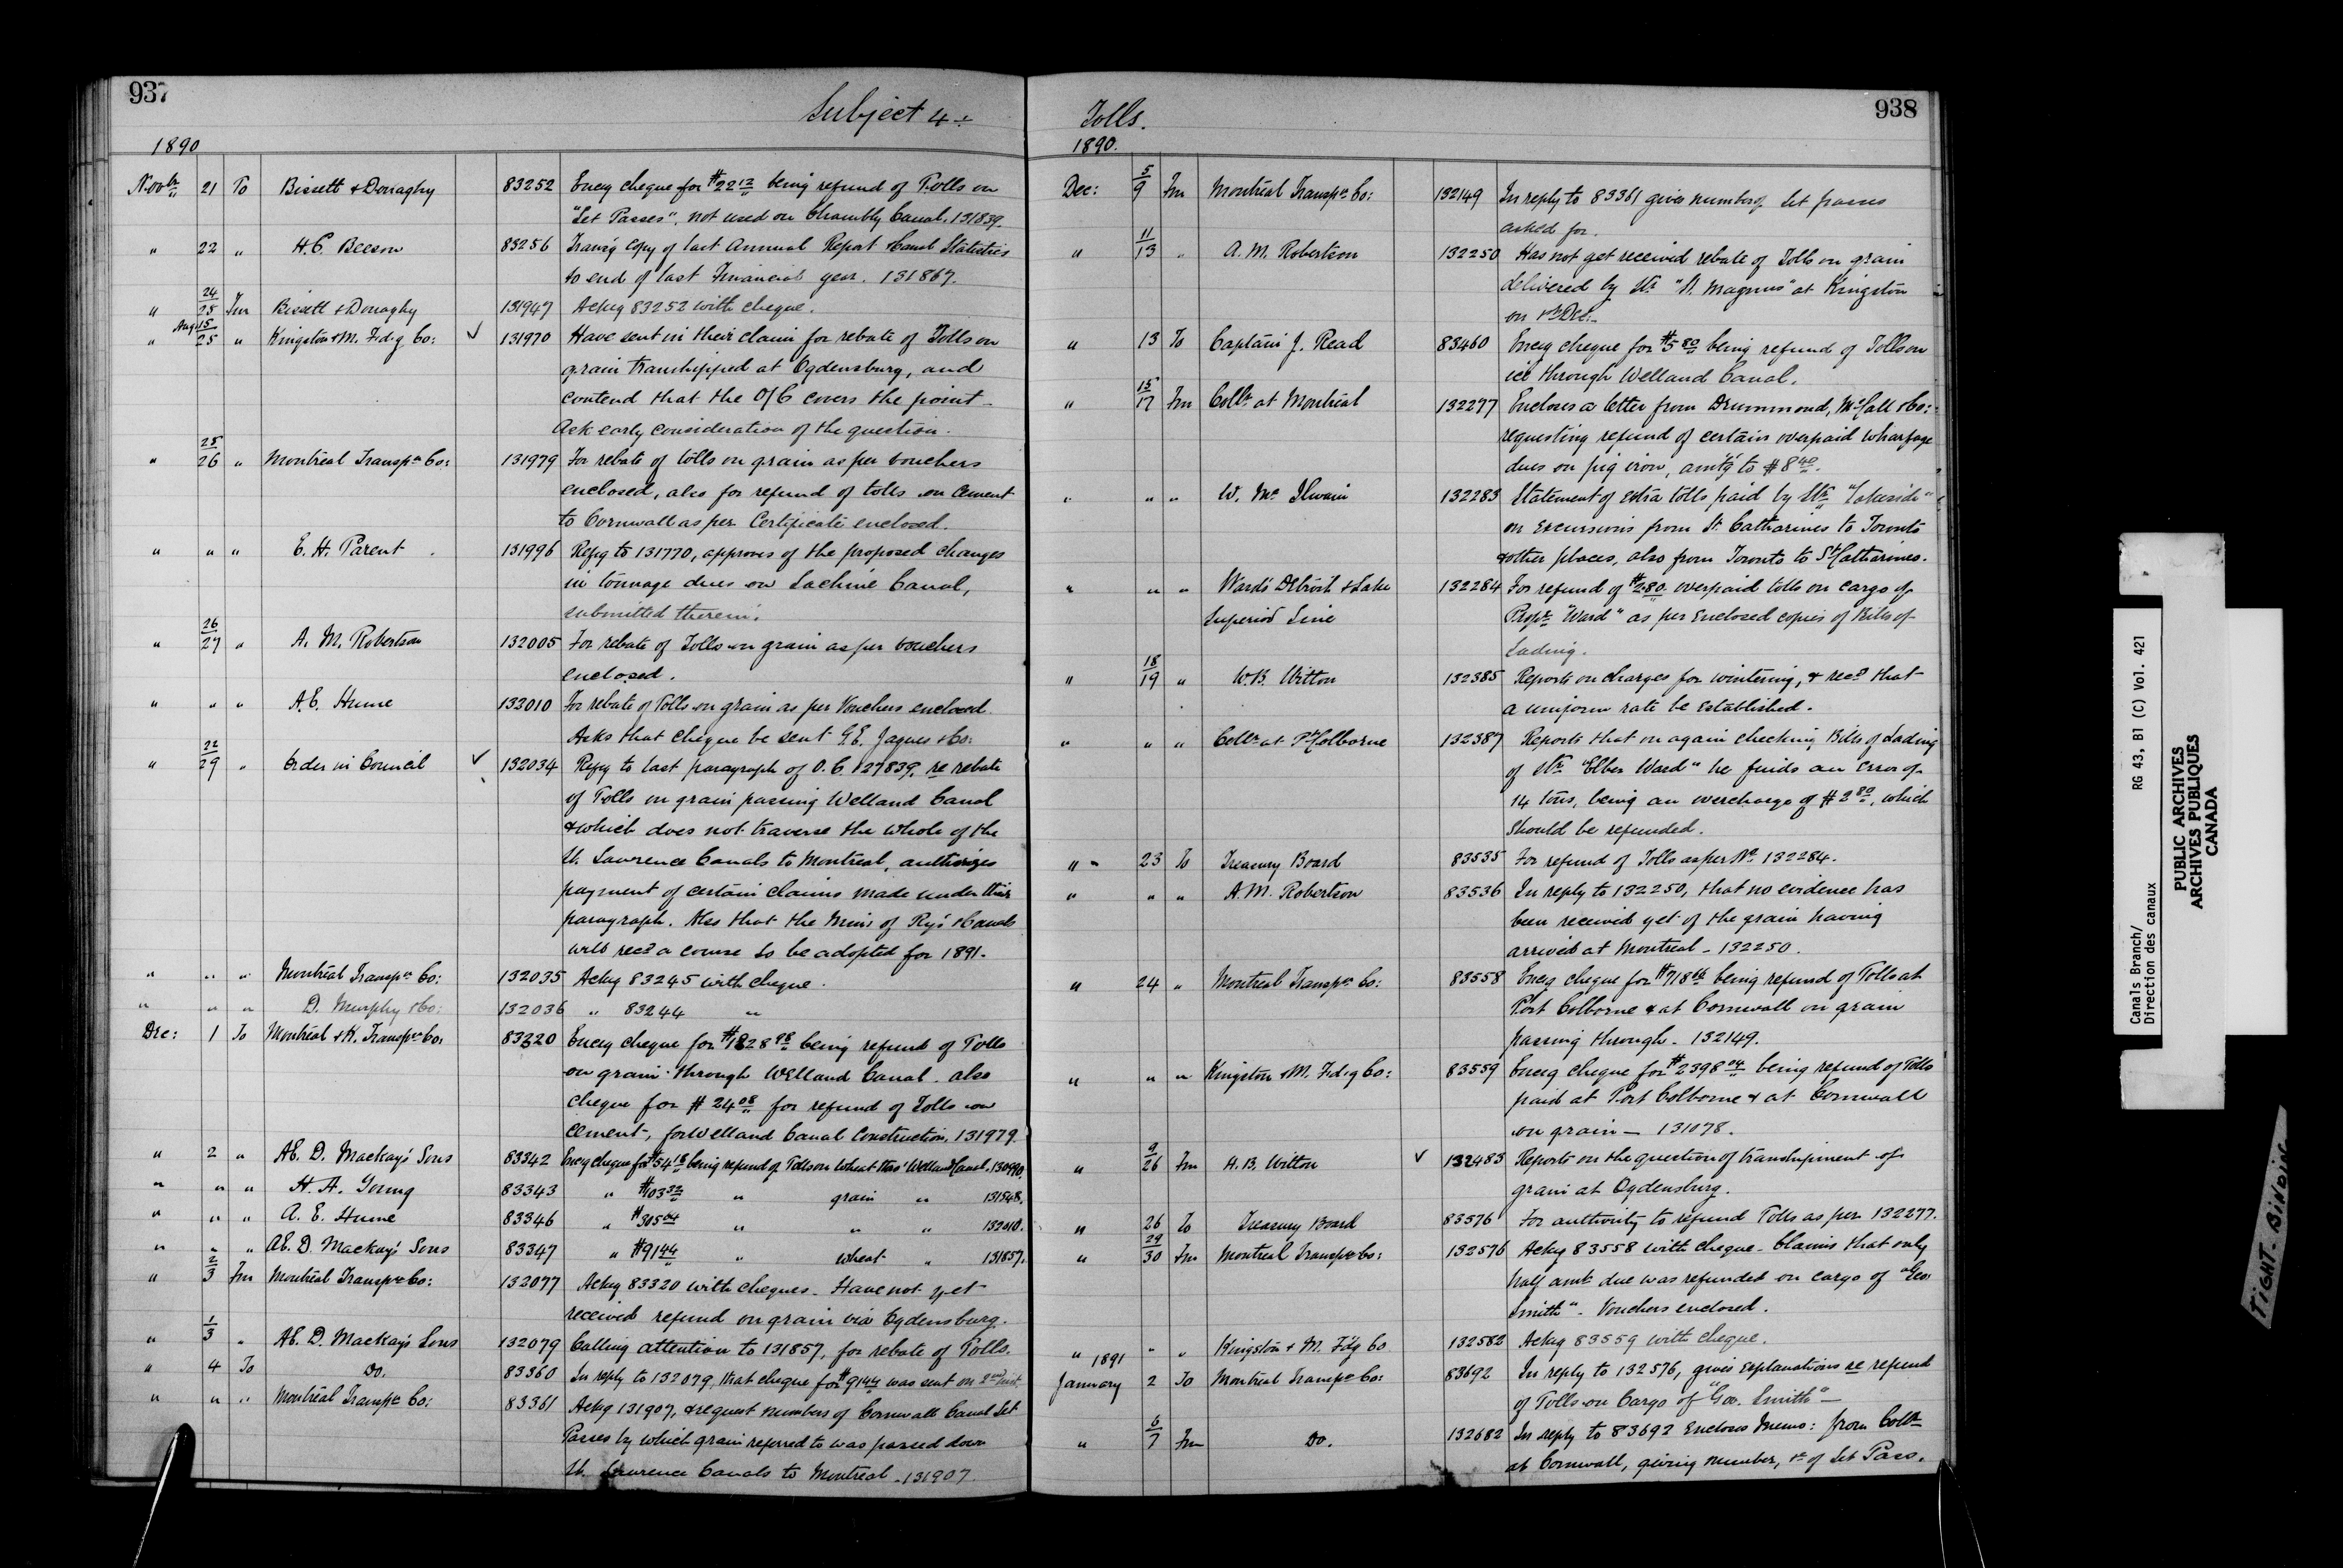 937
Subject 4 ÷
1890
Novbr 21 To Bissett & Donaghy 83252 Encg cheque for $22 12 being refund of Tolls on
"Let Passes". not used on Chambly Canal. 131839.
" 22 " H.C. Beeson 83256 Transg copy of last Annual Report & Canal Statistics
to end of last Financial year. 131867.
" 24/25 Fm Bissett & Donaghy 131947 Ackg 83252 with cheque.
" Aug 15/25 " Kingston & M. Fd.g Co: ✓ 131970 Have sent in their claim for rebate of Tolls on
grain transhipped at Ogdensburg, and
contend that the O/C covers the point -
Ask early consideration of the question.
" 25/26 " Montreal Transpn Co: 131979 For rebate of tolls on grain as per vouchers
enclosed, also for refund of tolls on Cement
to Cornwall as per Certificate enclosed.
" " " E. H. Parent 131996 Refg to 131770, approves of the proposed changes
in tonnage dues on Lachine Canal,
submitted therein.
" 26/27 " A. M. Robertson 132005 For rebate of Tolls on grain as per vouchers
enclosed.
" " " A.E. Hume 132010 For rebate of Tolls on grain as per Vouchers enclosed
Asks that cheque be sent G.E. Jaques & Co:
" 22/29 " Order in Council ✓ 132034 Refg to last paragraph of O.C. 127839, re rebate
of Tolls on grain passing Welland Canal
& which does not traverse the whole of the
St. Lawrence Canals to Montreal, authorizes
payment of certain claims made under this
paragraph. Also that the Minr of Rys & Canals
will recd a course to be adopted for 1891.
" " " Montreal Transpn Co: 132035 Ackg 83245 with cheque.
" " " D. Murphy & Co: 132036 " 83244 "
Dec: 1 To Montreal & K. Transpn Co. 83320 Encg cheque for $1828 98 being refund of Tolls
on grain through Welland Canal. also
cheque for $24 08 for refund of Tolls on
Cement, for Welland Canal Construction. 131979.
" 2 " AE. D. Mackay's Sons 83342 Encg cheque for $54 18 being refund of Tolls on Wheat thro' Welland Canal. 130990.
" " " H. A. Young 83343 " $103 32 " grain " 131548.
" " " A. E. Hume 83346 " $305 64 " " " 132010.
" " " AE. D. Mackay's Sons 83347 " $91 44 " wheat " 131857.
" 2/3 Fm Montreal Transpn Co: 132077 Ackg 83320 with cheques. Have not yet
received refund on grain via Ogdensburg.
" 1/3 " AE. D. Mackay's Sons 132079 Calling attention to 131857, for rebate of Tolls.
" 4 To Do. 83360 In reply to 132079, that cheque for $91 44 was sent on 2nd inst.
" " " Montreal Transpn Co: 83361 Ackg 131907, & request numbers of Cornwall Canal Let
Passes by which grain referred to was passed down
St. Lawrence Canals to Montreal - 131907
938
Tolls.
1890.
Dec: 5/9 Fm Montreal Transpn Co: 132149 In reply to 83361 gives number of Let passes
asked for.
" 11/13 " A. M. Robertson 132250 Has not yet received rebate of Tolls on grain
delivered by Str "A. Magnus" at Kingston
on 1st Dec:
" 13 To Captain J. Read 83460 Encg cheque for $5 80 being refund of Tolls on
ice through Welland Canal.
" 15/17 Fm Collr at Montreal 132277 Encloses a letter from Drummond, McCall & Co:
requesting refund of certain overpaid wharfage
dues on pig iron, amt'g to $8 40.
" " " W. Mc Ilwain 132283 Statement of extra tolls paid by Str "Lakeside"
on excursions from St. Catharines to Toronto
& other places, also from Toronto to St Catharines.
" " " Ward's Detroit & Lake 132284 For refund of $2.80 overpaid tolls on cargo of
Superior Line Propr "Ward" as per Enclosed copies of Bills of
Lading.
" 18/19 " W.B. Witton 132385 Reports on charges for wintering, & recd that
a uniform rate be established.
" " " Collr at Pt Colborne 132387 Reports that on again checking Bills of Lading
of Str "Elber Ward" he finds an error of
14 tons, being an overcharge of $2 80, which
should be refunded.
" 23 To Treasury Board 83535 For refund of Tolls as per No 132284.
" " " A. M. Robertson 83536 In reply to 132250, that no evidence has
been received yet of the grain having
arrived at Montreal - 132250.
" 24 " Montreal Transpn Co: 83558 Encg cheque for $718 66 being refund of Tolls at
Port Colborne & at Cornwall on grain
passing through - 132149.
" " " Kingston & M. Fd.g Co: 83559 Encg cheque for $2398 04 being refund of Tolls
paid at Port Colborne & at Cornwall
on grain - 131078.
" 9/26 Fm H. B. Witton ✓ 132483 Reports on the question of transhipment of
grain at Ogdensburg.
" 26 To Treasury Board 83576 For authority to refund Tolls as per 132277.
" 29/30 Fm Montreal Transpn Co: 132576 Ackg 83558 with cheque. Claims that only
half amt due was refunded on cargo of "Geo.
Smith". Vouchers enclosed.
" " " Kingston & M. F'd'g Co 132582 Ackg 83559 with cheque.
1891
January 2 To Montreal Transpn Co: 83692 In reply to 132576, gives explanations re refund
of Tolls on Cargo of "Geo. Smith" -
" 6/7 Fm Do. 132682 In reply to 83692 Encloses Memo: from Collr
at Cornwall, giving number, &c of Let Pass.
Canals Branch/
Direction des canaux
RG 43, B1 (C) Vol. 421
PUBLIC ARCHIVES
ARCHIVES PUBLIQUES
CANADA
TIGHT BINDING